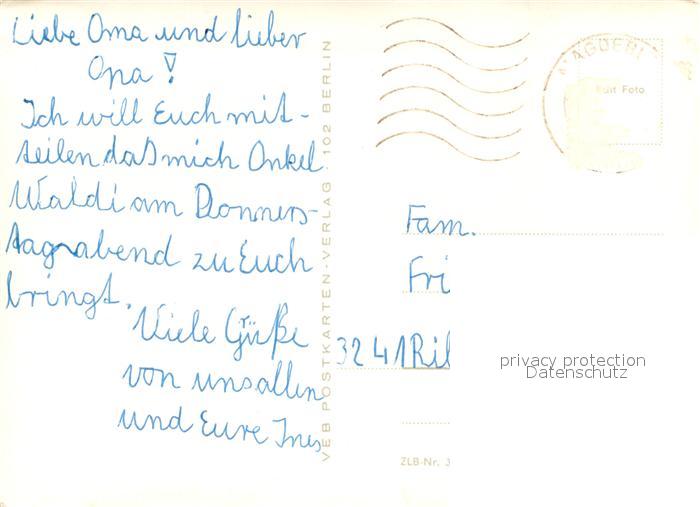 Liebe Oma und lieber
Opa!
Ich will Euch mit-
teilen daß mich Onkel
Waldi am Donners-
tagabend zu Euch
bringt.
Viele Güße
von uns allen
und Eure Ines
VEB POSTKARTEN-VERLAG 102 BERLIN
MAGDEBU
Bild Foto
Fam.
Fri
3241 Ril
privacy protection
Datenschutz
ZLB-Nr. 3